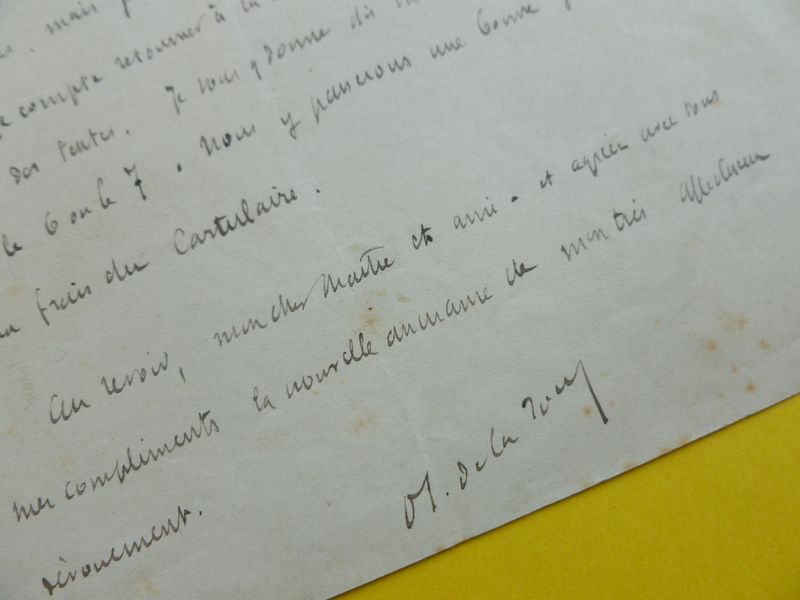 mais
compte retourner à la
des textes. Je vous y donne dis
le 6 ou le 7. Nous y passerons une bonne
frais du Cartulaire.
Au revoir, mon cher Maître et ami - et agréez avec tous
mes compliments la nouvelle assurance de mon très affectueux
dévouement.
de la